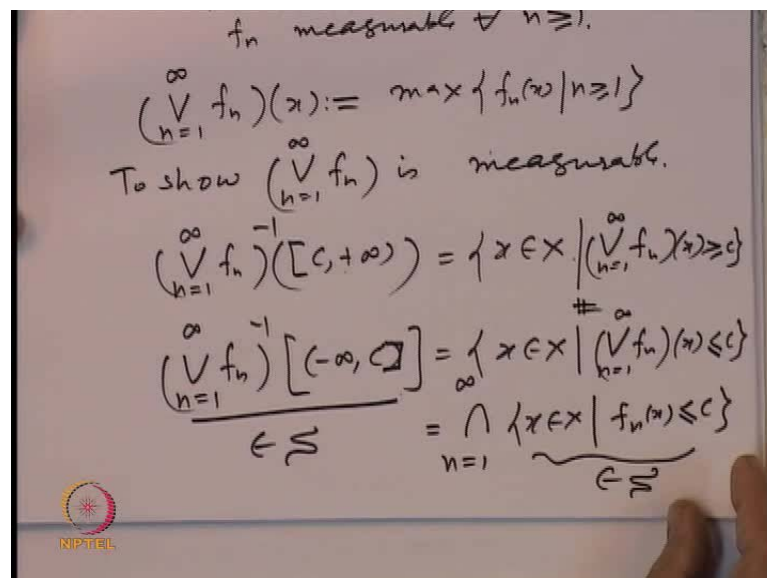 fn measurable ∀ n≥1.
(∞ ⋁ n=1 fn)(x) := max{fn(x) | n≥1}
To show (∞ ⋁ n=1 fn) is measurable.
(∞ ⋁ n=1 fn)⁻¹([c, +∞)) = {x ∈ X | (∞ ⋁ n=1 fn)(x) ≥ c}
(∞ ⋁ n=1 fn)⁻¹[(-∞, c]] = {x ∈ X | (∞ ⋁ n=1 fn)(x) ≤ c}
∈ S = ∞ ⋂ n=1 {x ∈ X | fn(x) ≤ c}
∈ S
NPTEL